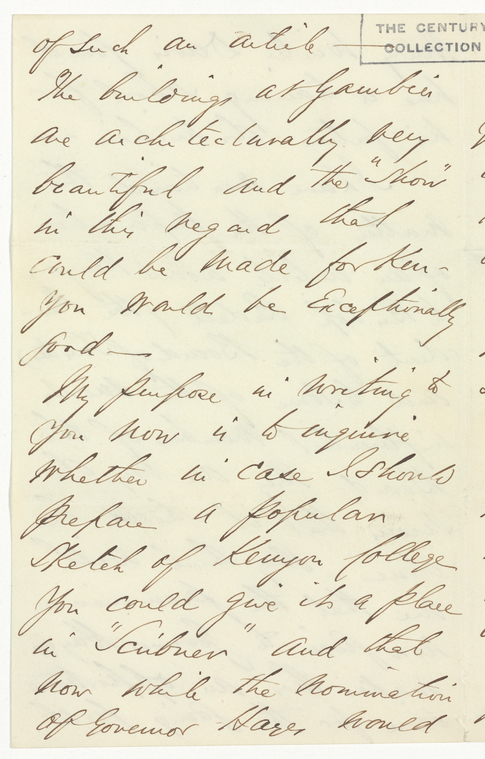 THE CENTURY
COLLECTION
of such an article —
The buildings at Gambier
are architecturally very
beautiful and the "Show"
in this regard that
could be made for Ken-
yon would be Exceptionally
good —
My purpose in writing to
you now is to inquire
whether in case I should
prepare a popular
sketch of Kenyon College
you could give it a place
in "Scribner" and that
now while the nomination
of Governor Hayes would